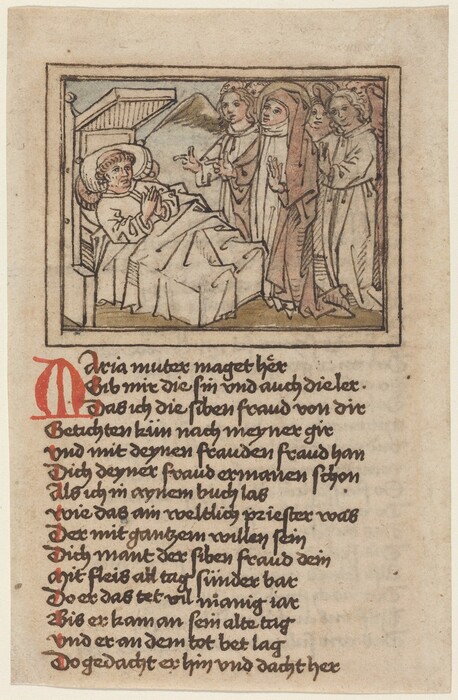 Maria muter maget her
Gib mir die sin vnd auch die ler.
Das ich die siben fraud von dir
Getichten kün nach meyner gir
vnd mit deynen frauden fraud han
Dich deyner fraud ermanen schon
Als ich in aynem buch las
wie das ain weltlich priester was
Der mit gantzem willen sein
Dich mant der siben fraud dein
Mit fleis all tag sunder bar
Do er das tet vil manig iar
Bis er kam an sein alte tag
vnd er an dem tot bet lag
Do gedacht er hin vnd dacht her